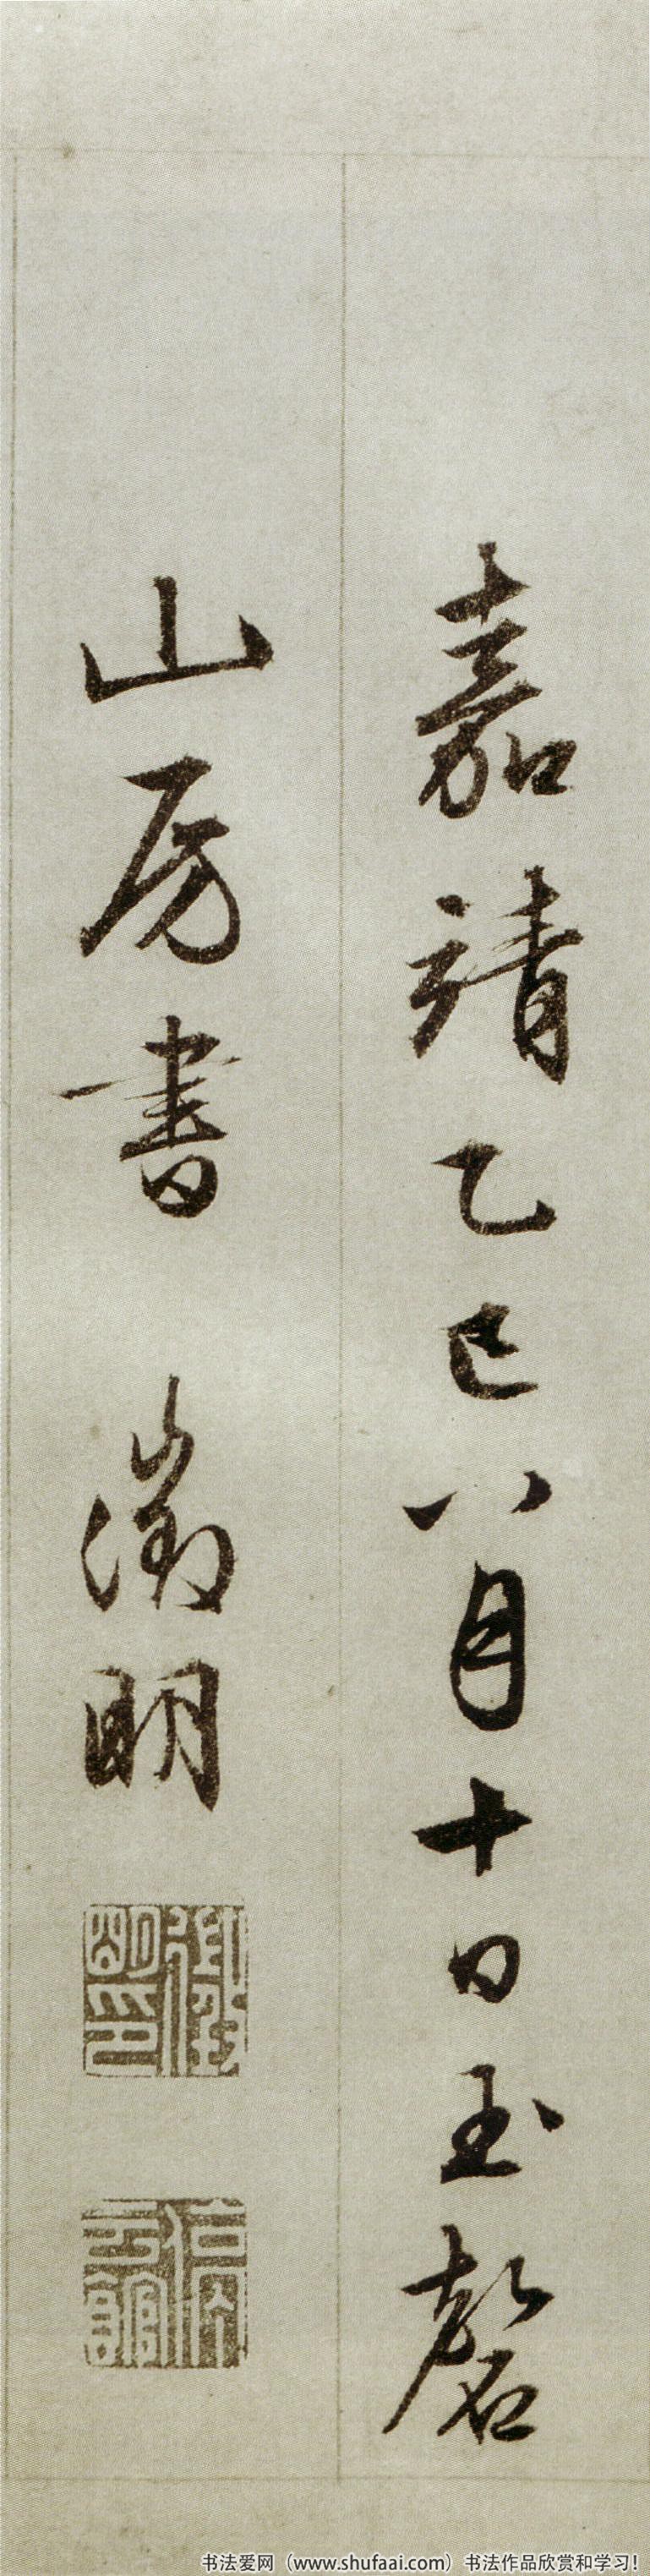 嘉靖乙巳八月十日玉磬
山房書 徵明
徵明印
停雲館
书法爱网（www.shufaai.com）书法作品欣赏和学习！